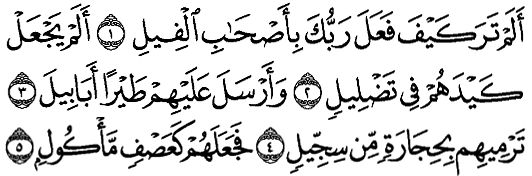 أَلَمْ تَرَ كَيْفَ فَعَلَ رَبُّكَ بِأَصْحَابِ الْفِيلِ ۝١ أَلَمْ يَجْعَلْ
كَيْدَهُمْ فِي تَضْلِيلٍ ۝٢ وَأَرْسَلَ عَلَيْهِمْ طَيْرًا أَبَابِيلَ ۝٣
تَرْمِيهِم بِحِجَارَةٍ مِّن سِجِّيلٍ ۝٤ فَجَعَلَهُمْ كَعَصْفٍ مَّأْكُولٍ ۝٥